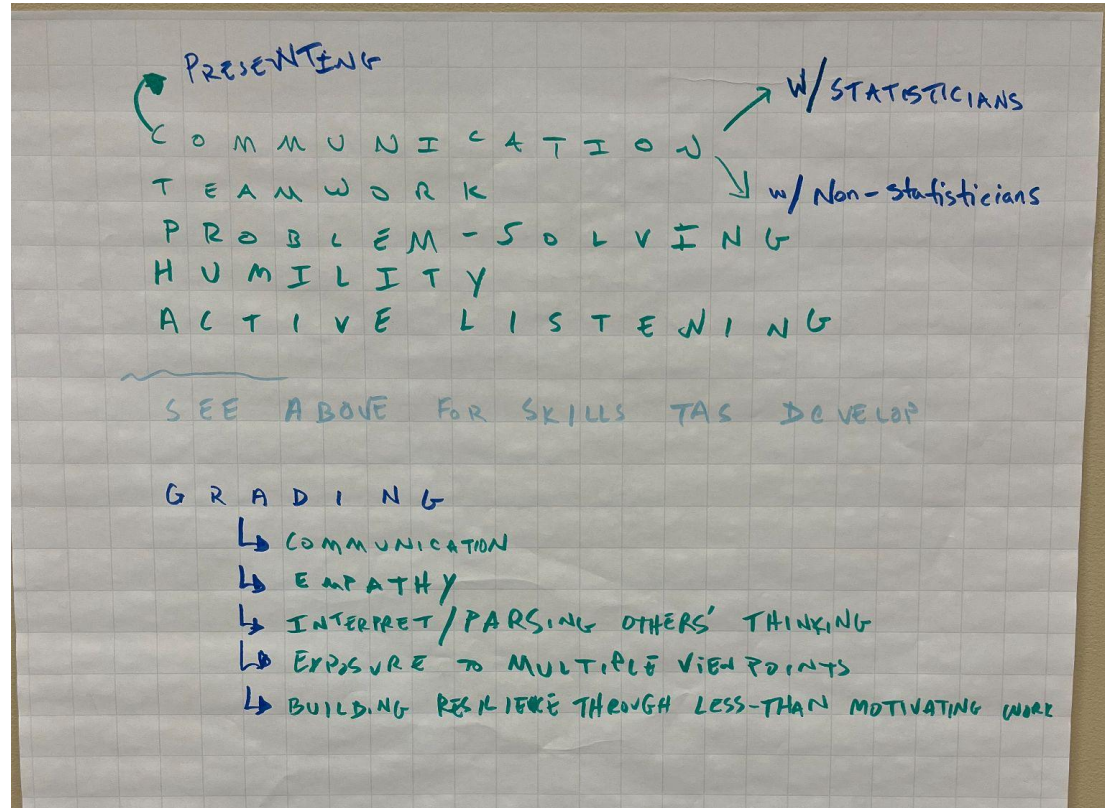 PRESENTING
W/ STATISTICIANS
COMMUNICATION
TEAMWORK
w/ Non-statisticians
PROBLEM-SOLVING
HUMILITY
ACTIVE LISTENING
SEE ABOVE FOR SKILLS TAS DEVELOP
GRADING
↳ COMMUNICATION
↳ EMPATHY
↳ INTERPRET/PARSING OTHERS' THINKING
↳ EXPOSURE TO MULTIPLE VIEWPOINTS
↳ BUILDING RESILIENCE THROUGH LESS-THAN MOTIVATING WORK